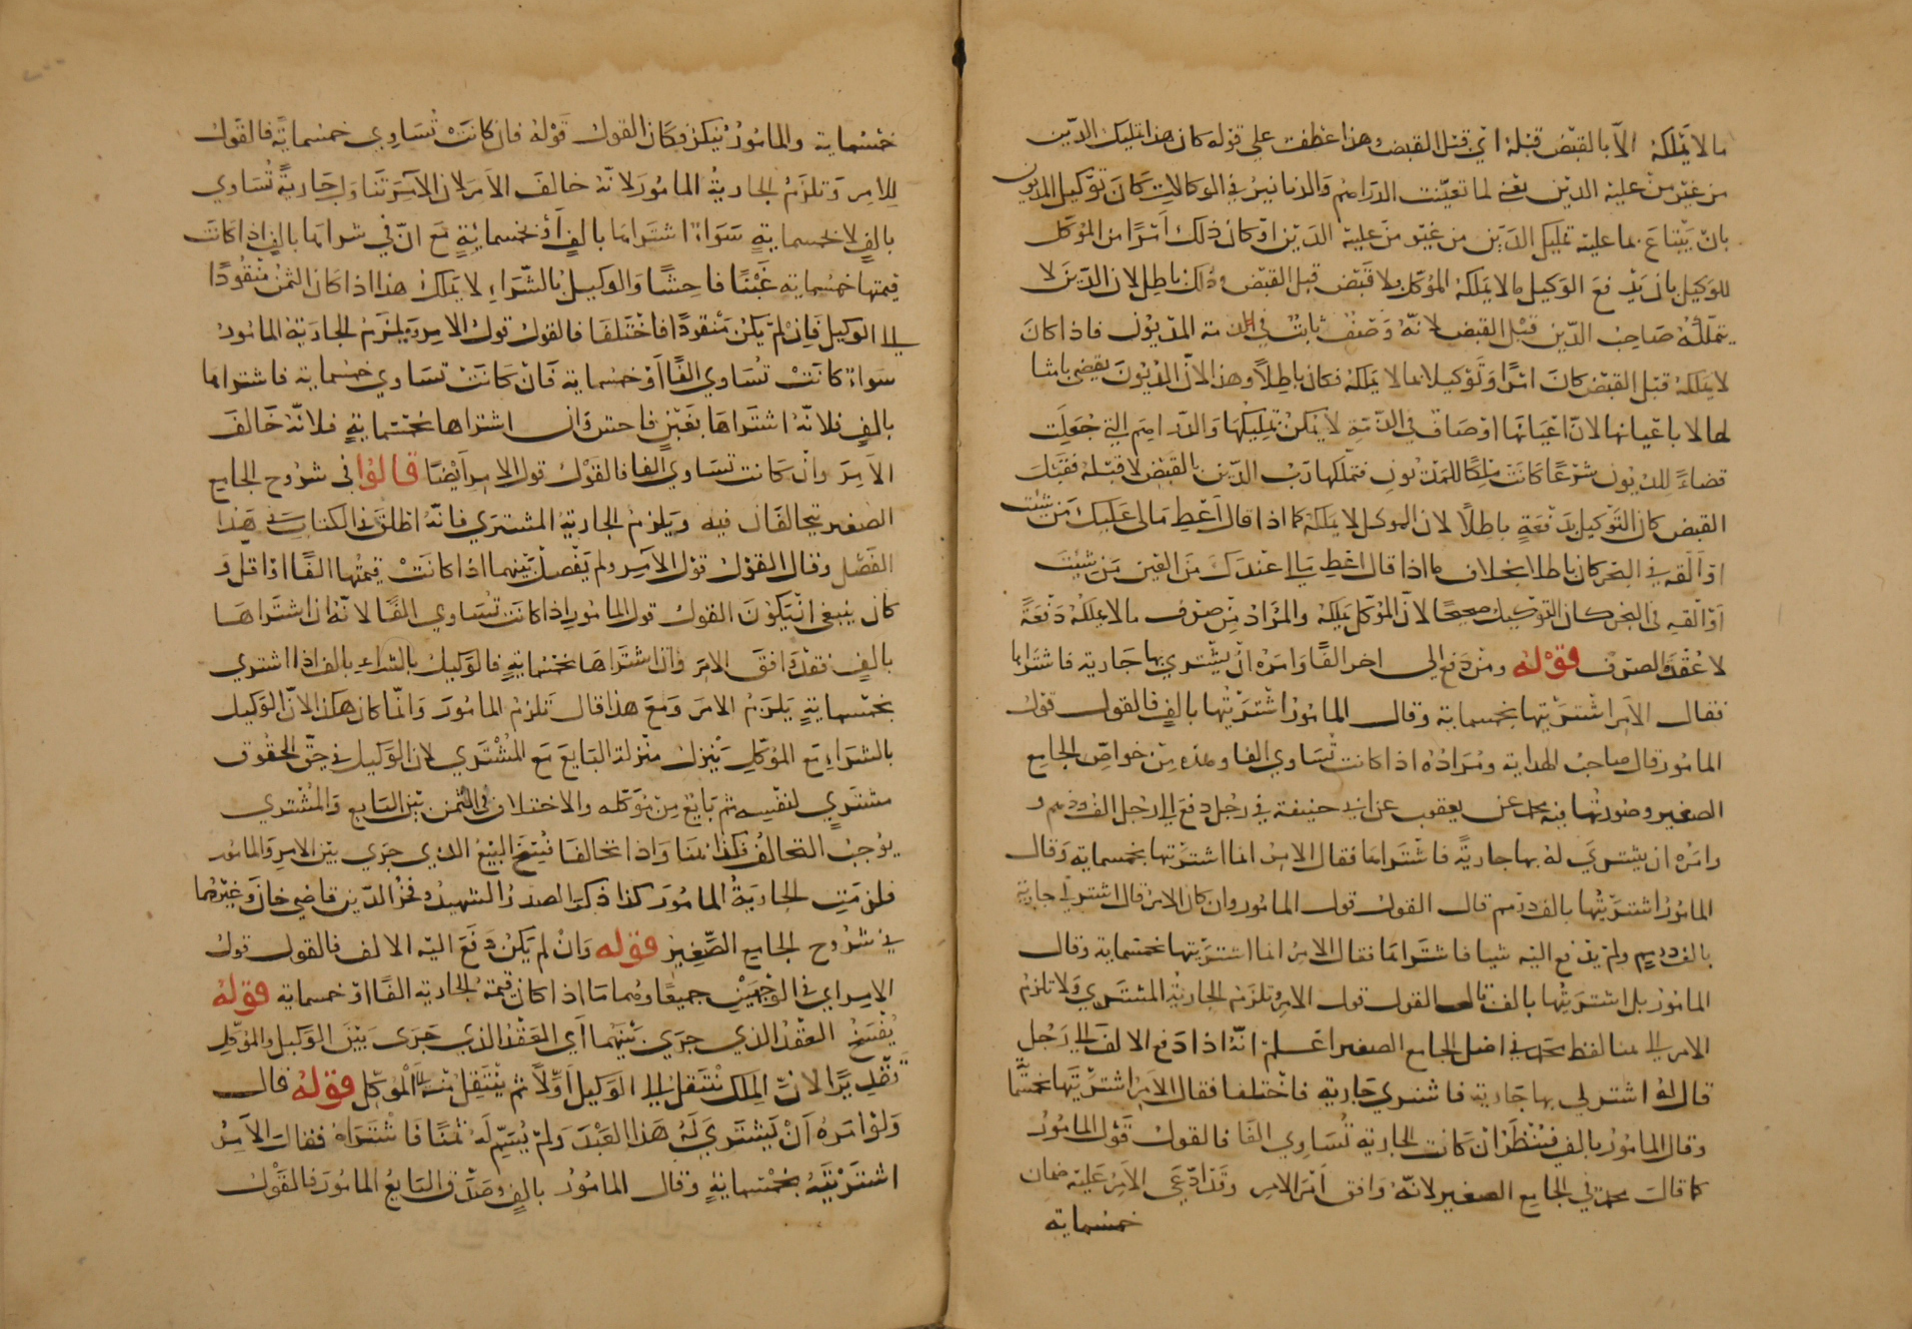 ما لا يملكه الا بالقبض قبله اي قبل القبض وهذا عطف على قوله كان هذا تمليك الدين
من غير من عليه الدين يعني لما تعينت الدراهم والدنانير في الوكالات كان توكيل المديون
بان يبتاع بما عليه تمليك الدين من غير من عليه الدين او كان ذلك امرا من الموكل
للوكيل بان يدفع الوكيل ما لا يملكه الموكل ولا قبض قبل القبض وذلك باطل لان الدين لا
يتملكه صاحب الدين قبل القبض لانه وصف ثابت في ذمة المديون فاذا كان
لا يملكه قبل القبض كان امرا وتوكيلا بما لا يملكه فكان باطلا وهذا لان الديون تقضى بامثا
لها لا باعيانها لان اعيانها اوصاف في الذمة لا يمكن تمليكها والدراهم التي جعلت
قضاء للديون شرعا كانت ملكا للمديون فتملكها رب الدين بالقبض لا قبله فقبل
القبض كان التوكيل بدفعه باطلا لان الموكل لا يملكه كما اذا قال اعط مالي عليك من شئت
او القه في البحر كان باطلا بخلاف ما اذا قال اعط ما لي عندك من العين من شئت
او القه في البحر كان التوكيل صحيحا لان الموكل يملكه والمراد من صرف ما لا يملكه دفعه
لا عقد الصرف قوله ومن دفع الى اخر الفا وامره ان يشتري بها جارية فاشتراها
فقال الامر اشتريتها بخمسماية وقال المامور اشتريتها بالف فالقول قول
المامور قال صاحب الهداية ومراده اذا كانت تساوي الفا وهذه من خواص الجامع
الصغير وصورتها فيه محمد عن يعقوب عن ابي حنيفة في رجل دفع الى رجل الف درهم و
وامره ان يشتري له بها جارية فاشتراها فقال الامر انما اشتريتها بخمسماية وقال
المامور اشتريتها بالف درهم قال القول قول المامور وان كان الامر قال اشتر لي جارية
بالف درهم ولم يدفع اليه شيا فاشتراها فقال الامر انما اشتريتها بخمسماية وقال
المامور بل اشتريتها بالف قال القول قول الامر وتلزم الجارية المشتري ولا تلزم
الامر الى هنا لفظ محمد في اصل الجامع الصغير اعلم انه اذا دفع الالف الى رجل
قال له اشتر لي بها جارية فاشترى جارية فاختلفا فقال الامر اشتريتها بخمسما
وقال المامور بالف فينظر ان كانت الجارية تساوي الفا فالقول قول المامور
كما قال محمد في الجامع الصغير لانه وافق امر الامر وقد ادعى الامر عليه ضمان
خمسماية
خمسماية والمامور ينكر فكان القول قوله فان كانت تساوي خمسماية فالقول
للامر وتلزم الجارية المامور لانه خالف الامر لان الامر تناول جارية تساوي
بالف لا بخمسماية سواء اشتراها بالف او بخمسماية مع ان في شرائها بالف اذا كانت
قيمتها خمسماية غبنا فاحشا والوكيل بالشراء لا يملك هذا اذا كان الثمن منقودا
الى الوكيل فان لم يكن منقودا فاختلفا فالقول قول الامر ويلزم الجارية المامور
سواء كانت تساوي الفا او خمسماية فان كانت تساوي خمسماية فاشتراها
بالف فلانه اشتراها بغبن فاحش وان اشتراها بخمسماية فلانه خالف
الامر وان كانت تساوي الفا فالقول قول الامر ايضا قالوا في شروح الجامع
الصغير يتحالفان فيه ويلزم الجارية المشتري فانه اطلق في الكتاب في هذا
الفصل وقال القول قول الامر ولم يفصل بينهما اذا كانت قيمتها الفا او اقل و
كان ينبغي ان يكون القول قول المامور اذا كانت تساوي الفا لانه ان اشتراها
بالف فقد وافق الامر وان اشتراها بخمسماية فالوكيل بالشراء بالف اذا اشترى
بخمسماية يلزم الامر ومع هذا قال تلزم المامور وانما كان هكذا لان الوكيل
بالشراء مع الموكل ينزل منزلة البايع مع المشتري لان الوكيل في حق الحقوق
مشتري لنفسه ثم بايع من موكله والاختلاف في الثمن بين البايع والمشتري
يوجب التحالف فكذا هنا واذا تحالفا فسخ البيع الذي جرى بين الامر والمامور
فلزمت الجارية المامور كذا ذكر الصدر الشهيد وفخر الدين قاضي خان وغيرهما
في شروح الجامع الصغير قوله وان لم يكن دفع اليه الالف فالقول قول
الامر اي في الوجهين جميعا وهما ما اذا كان قيمة الجارية الفا او خمسماية قوله
يفسخ العقد الذي جرى بينهما اي العقد الذي جرى بين الوكيل والموكل
تقديرا لان الملك ينتقل الى الوكيل اولا ثم ينتقل منه الى الموكل قوله قال
ولو امره ان يشتري له هذا العبد ولم يسم له ثمنا فاشتراه فقال الامر
اشتريته بخمسماية وقال المامور بالف وصدق البايع المامور فالقول